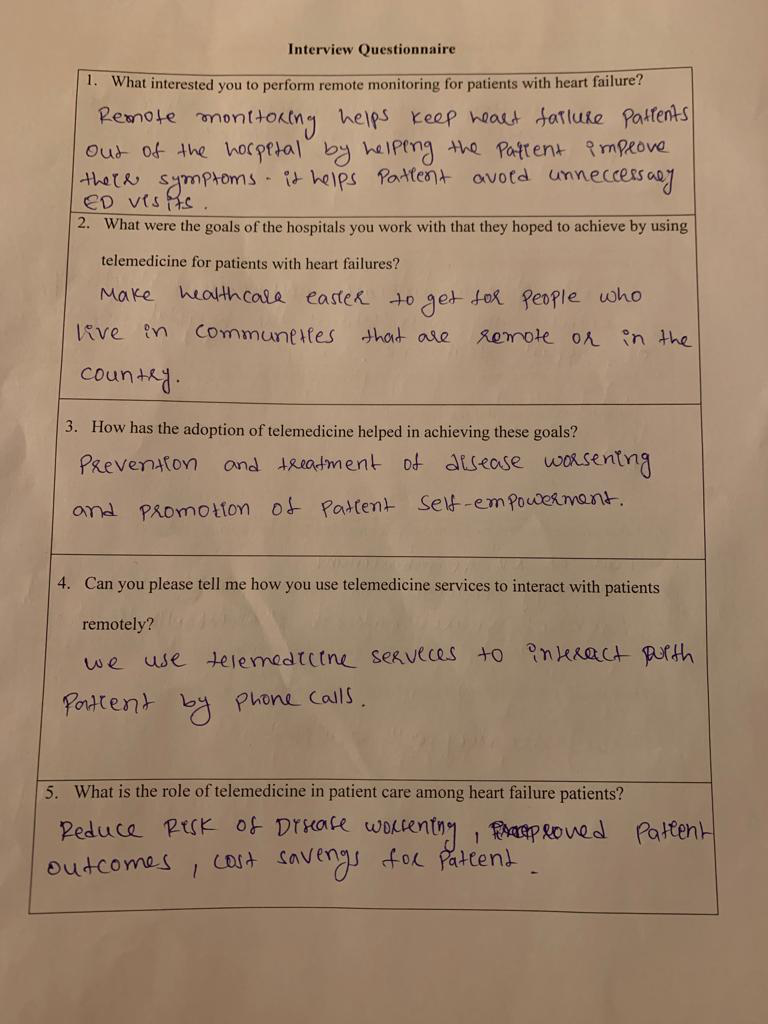 Interview Questionnaire
1. What interested you to perform remote monitoring for patients with heart failure?
Remote monitoring helps keep heart failure patients
out of the hospital by helping the patient improve
their symptoms. it helps patient avoid unneccessary
ED visits.
2. What were the goals of the hospitals you work with that they hoped to achieve by using
telemedicine for patients with heart failures?
Make healthcare easier to get for people who
live in communities that are remote or in the
country.
3. How has the adoption of telemedicine helped in achieving these goals?
Prevention and treatment of disease worsening
and promotion of patient self-empowerment.
4. Can you please tell me how you use telemedicine services to interact with patients
remotely?
we use telemedicine services to interact with
patient by phone calls.
5. What is the role of telemedicine in patient care among heart failure patients?
Reduce Risk of Disease worsening, Improved patient
outcomes, cost savings for patient.